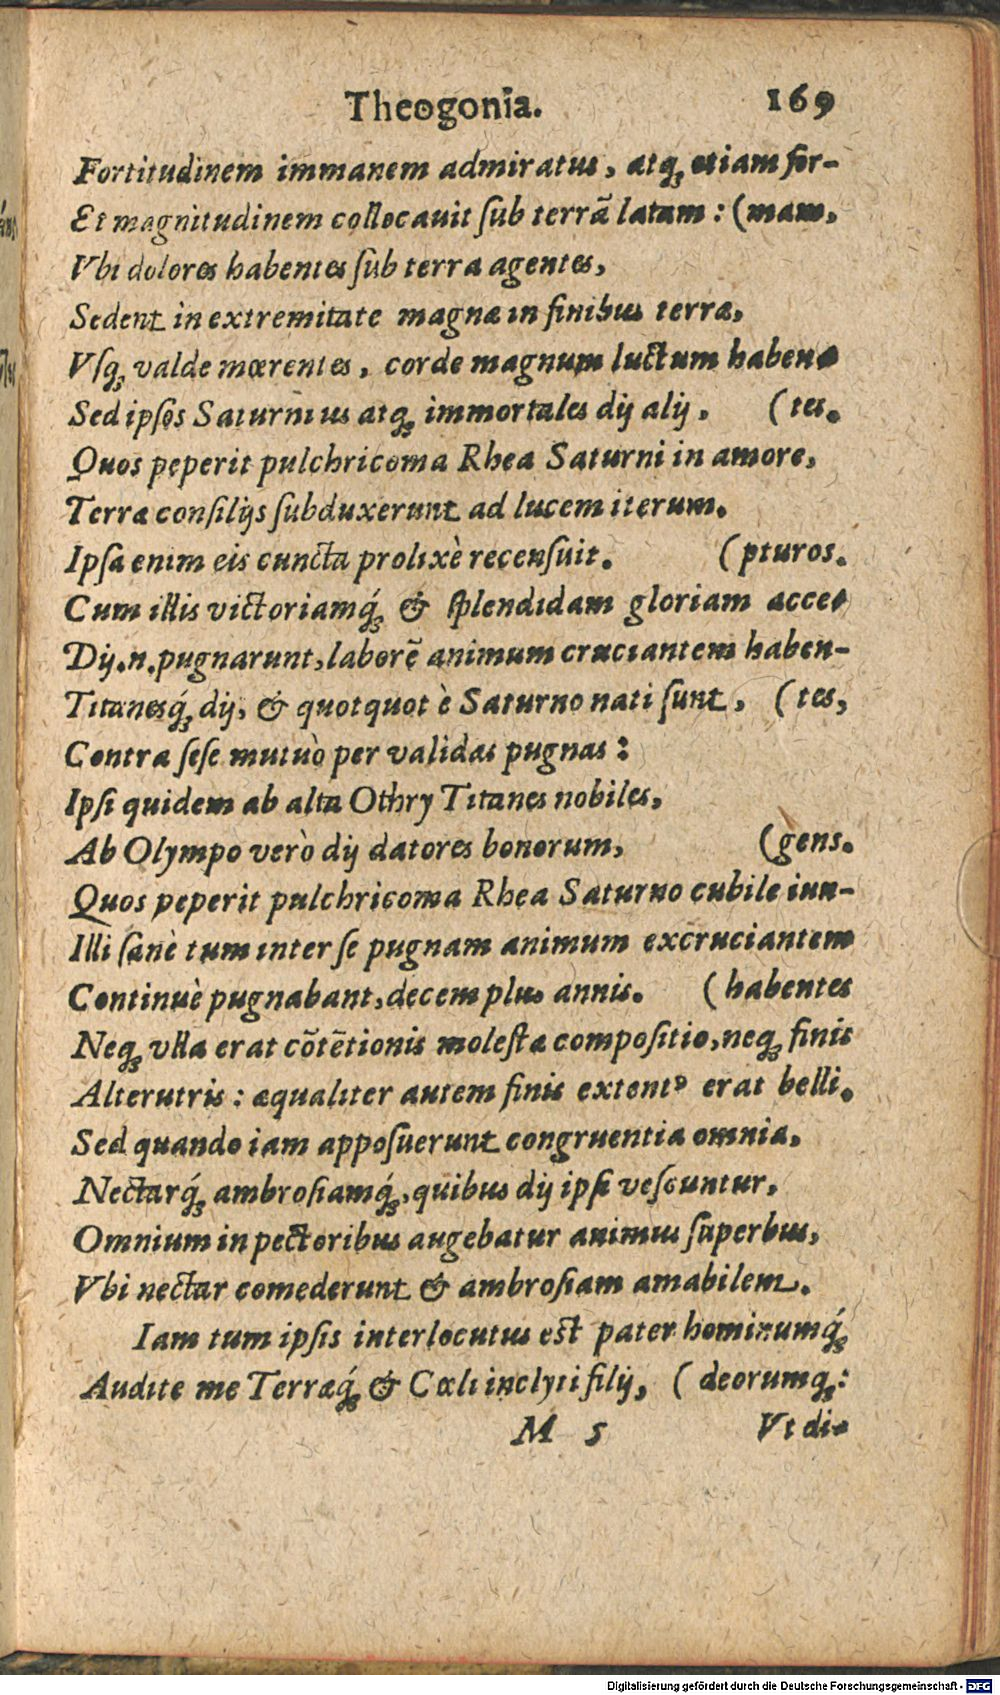 Theogonia. 169
Fortitudinem immanem admiratus, atq́; etiam for-
Et magnitudinem collocauit ſub terrã latam: (mam,
Vbi dolores habentes ſub terra agentes,
Sedent in extremitate magnæ in finibus terræ,
Vſq; valde mœrentes, corde magnum luctum haben-
Sed ipſos Saturnius atq; immortales dij alij, (tes.
Quos peperit pulchricoma Rhea Saturni in amore,
Terræ conſilijs ſubduxerunt ad lucem iterum.
Ipſa enim eis cuncta prolixè recenſuit. (pturos.
Cum illis victoriamq́; & ſplendidam gloriam acce-
Dij.n.pugnarunt, laborẽ animum cruciantem haben-
Titanesq́; dij, & quotquot è Saturno nati ſunt, (tes,
Contra ſeſe mutuò per validas pugnas:
Ipſi quidem ab alta Othry Titanes nobiles,
Ab Olympo verò dij datores bonorum, (gens.
Quos peperit pulchricoma Rhea Saturno cubile iun-
Illi ſanè tum inter ſe pugnam animum excruciantem
Continuè pugnabant, decem plus annis. (habentes
Neq; vlla erat cõtẽtionis moleſtæ compoſitio, neq; finis
Alterutris: æqualiter autem finis extentꝰ erat belli.
Sed quando iam appoſuerunt congruentia omnia,
Nectarq́; ambroſiamq́;, quibus dij ipſi veſcuntur,
Omnium in pectoribus augebatur animus ſuperbus,
Vbi nectar comederunt & ambroſiam amabilem.
Iam tum ipſis interlocutus eſt pater hominumq́;
Audite me Terræq́; & Cœli inclyti filij, (deorumq;:
M 5 Vt di-
Digitalisierung gefördert durch die Deutsche Forschungsgemeinschaft - DFG